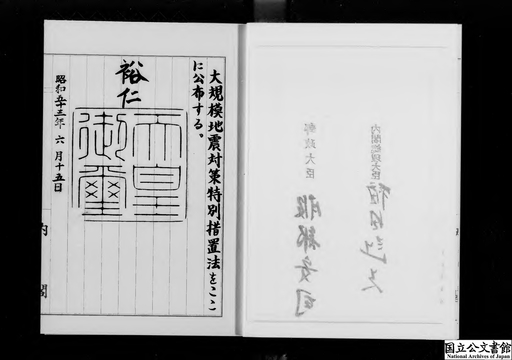 大規模地震対策特別措置法をここ
に公布する。
裕仁
天皇
御璽
昭和五十三年六月十五日
内閣
内閣総理大臣
郵政大臣
国立公文書館
National Archives of Japan